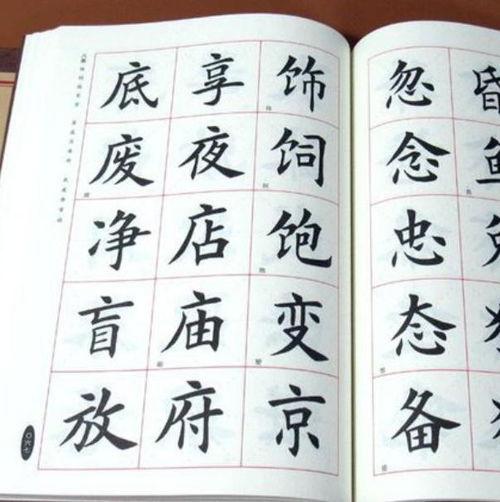 昏鱼
忽念忠态备
饰饲饱变京
享夜店庙府
底废净盲放
〇六七